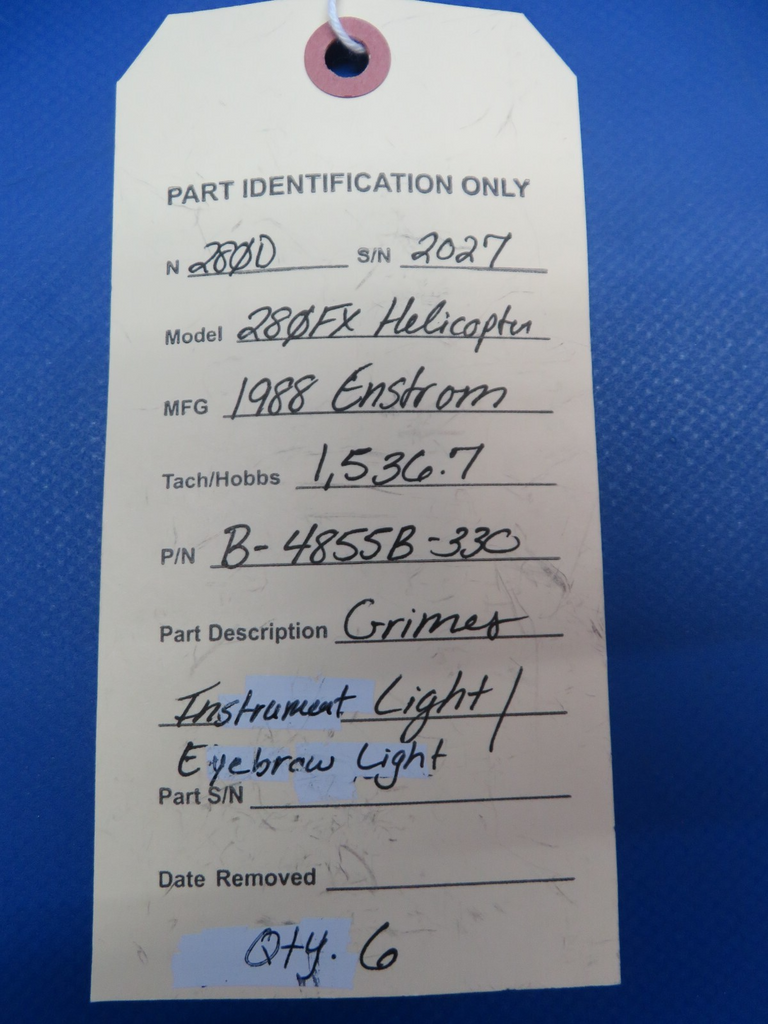 PART IDENTIFICATION ONLY
N 28ØD S/N 2027
Model 28ØFX Helicopter
MFG 1988 Enstrom
Tach/Hobbs 1,536.7
P/N B-4855B-330
Part Description Grimes
Instrument Light /
Eyebrow Light
Part S/N
Date Removed
Qty. 6